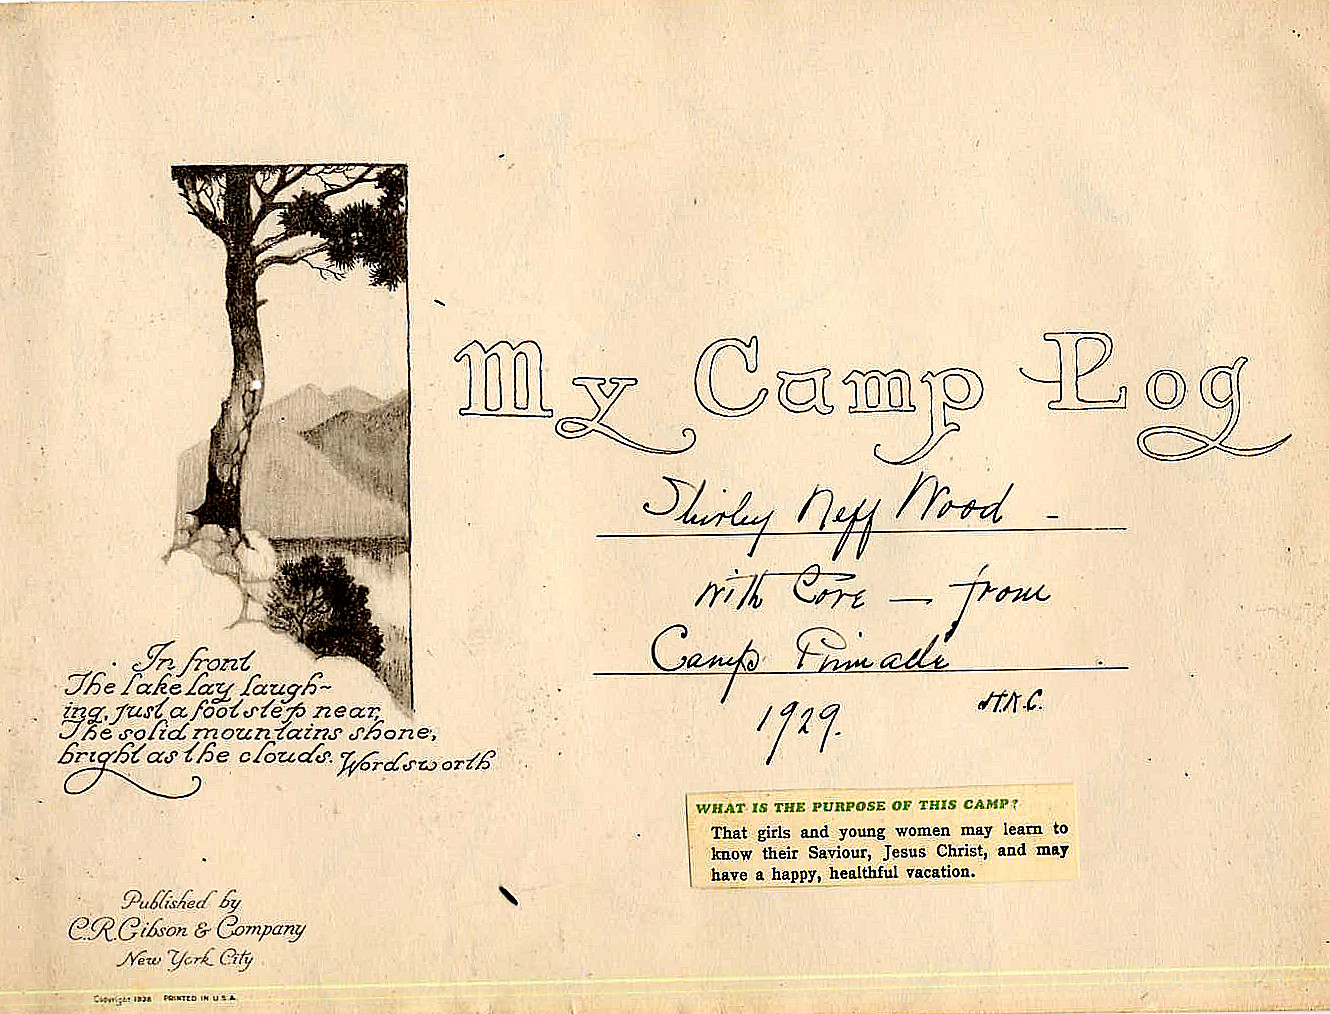 My Camp Log
Shirley Neff Wood -
With Love — from
Camp Pinnacle
1929.
In front
The lake lay laugh~
ing, just a footstep near,
The solid mountains shone,
bright as the clouds. Wordsworth
WHAT IS THE PURPOSE OF THIS CAMP?
That girls and young women may learn to
know their Saviour, Jesus Christ, and may
have a happy, healthful vacation.
Published by
C.R. Gibson & Company
New York City
Copyright PRINTED IN U.S.A.